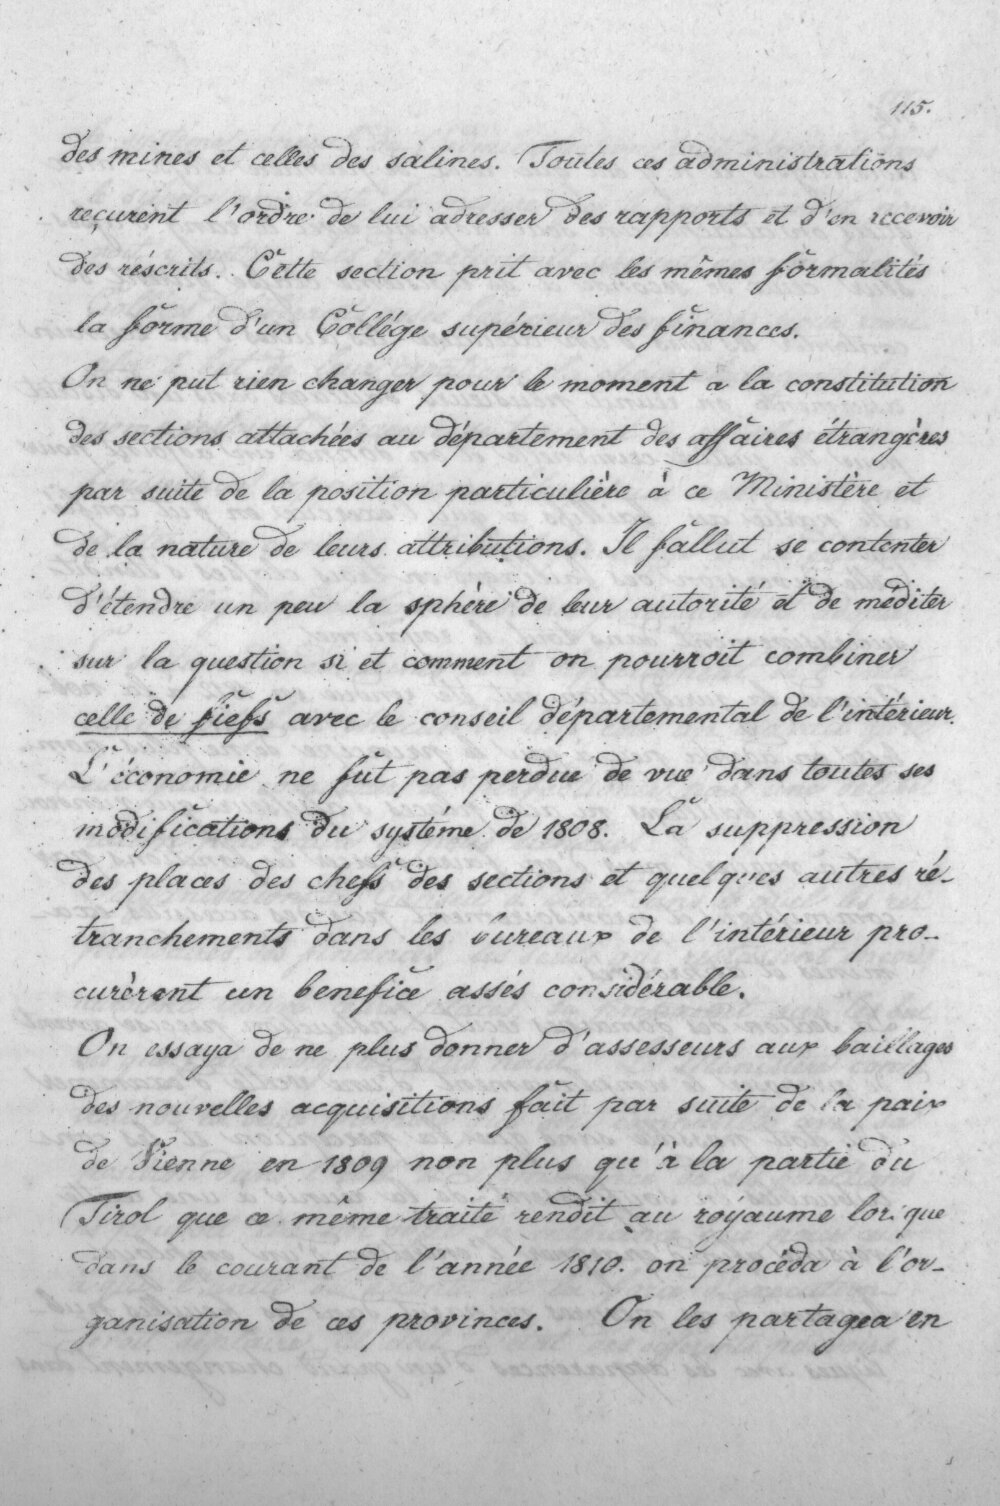 115.
des mines et celles des salines. Toutes ces administrations
reçurent l'ordre de lui adresser des rapports et d'en recevoir
des réscrits. Cette section prit avec les mêmes formalités
la forme d'un Collége supérieur des finances.
On ne put rien changer pour le moment à la constitution
des sections attachées au département des affaires étrangères
par suite de la position particulière à ce Ministère et
de la nature de leurs attributions. Il fallut se contenter
d'étendre un peu la sphère de leur autorité et de méditer
sur la question si et comment on pourroit combiner
celle de fiefs avec le conseil départemental de l'intérieur.
L'économie ne fut pas perdue de vue dans toutes ses
modifications du systéme de 1808. La suppression
des places des chefs des sections et quelques autres ré-
tranchements dans les bureaux de l'intérieur pro-
curèrent un benefice assés considérable.
On essaya de ne plus donner d'assesseurs aux baillages
des nouvelles acquisitions fait par suite de la paix
de Vienne en 1809 non plus qu'à la partie du
Tirol que ce même traité rendit au royaume lorsque
dans le courant de l'année 1810. on procéda à l'or-
ganisation de ces provinces. On les partagea en